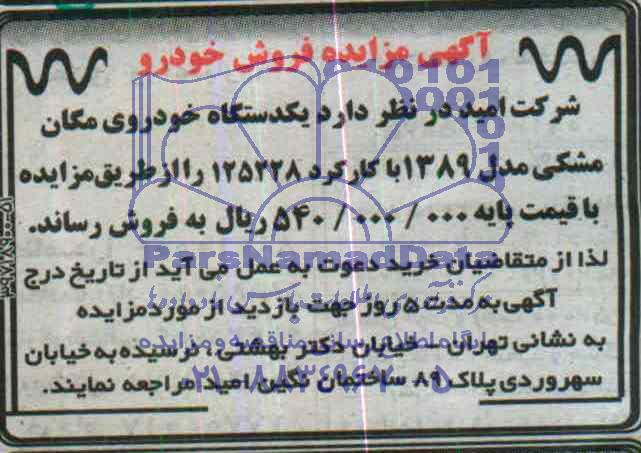 آگهی مزایده فروش خودرو
شرکت امید در نظر دارد یکدستگاه خودروی مگان
مشکی مدل ۱۳۸۹ با کارکرد ۱۲۵۲۲۸ را از طریق مزایده
با قیمت پایه ۵۴۰/۰۰۰/۰۰۰ ریال به فروش رساند.
لذا از متقاضیان خرید دعوت به عمل می آید از تاریخ درج
آگهی به مدت ۵ روز جهت بازدید از مورد مزایده
به نشانی تهران - خیابان دکتر بهشتی، نرسیده به خیابان
سهروردی پلاک ۸۹ ساختمان نگین امید مراجعه نمایند.
ParsNamadData
پایگاه اطلاع رسانی مناقصه و مزایده